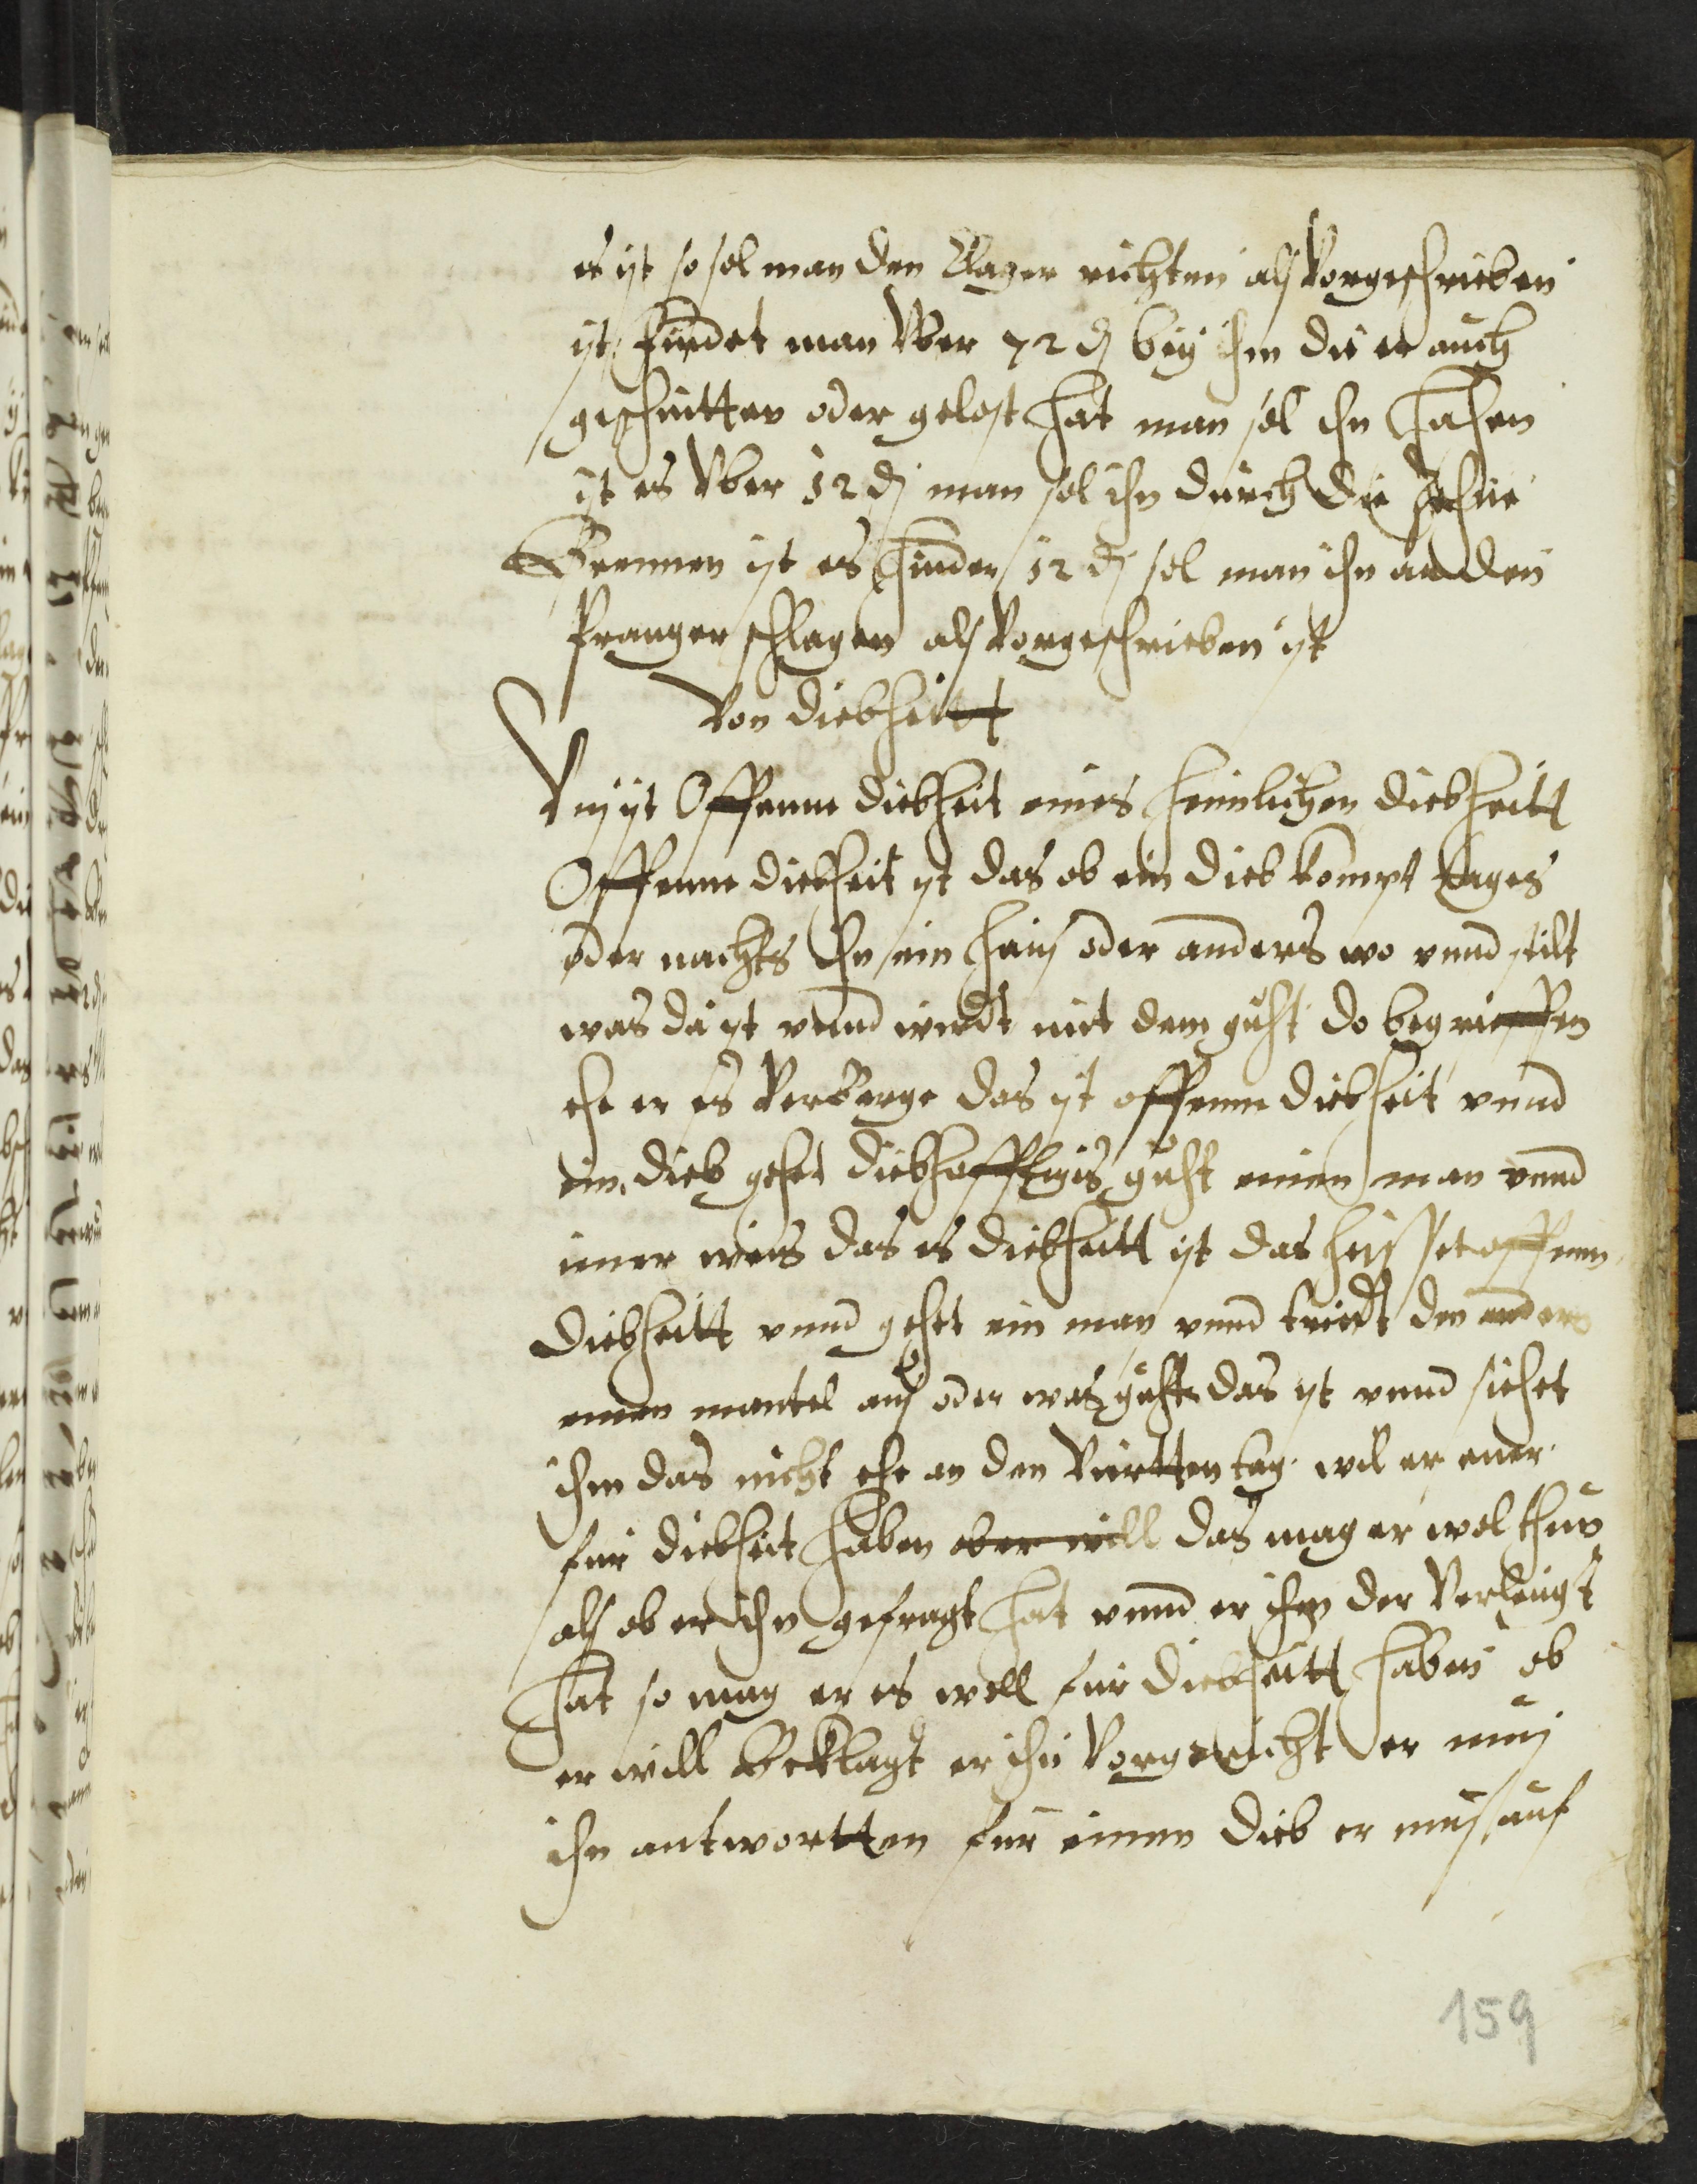 es ist so sol man den Klager richten als Vorgeschrieben
ist findet man Vber 72 ₰ bey ihm die er auch
geschnitten oder gelost hat man sol ihn hahen
ist es Vber 12 ₰ man sol ihn durch die zehne
Brennen ist es hinder 12 ₰ sol man ihn an den
Pranger schlagen als Vorgeschrieben ist
Von diebheitt
ist Offenne diebheit eines heimlichen diebheitt
Offenne diebheit ist das ob ein dieb kompt tages
oder nachts ihn ein haus oder anders wo vnnd stilt
was da ist vnnd wirdt mit dem guht do begrieffen
ehe er es Verberge das ist offenne diebheit vnnd
ein dieb gehet diebhafftigs guht einen man vnnd
iener weis das es diebheitt ist das heisset offenn
diebheitt vnnd gehet ein man vnnd triedt den andern
einen mantel aus oder was guht das ist vnnd siehet
ihm das nicht ehe an den Viertten tag wil er ener
fur diebheit haben ober will das mag er wol thun
als ob er ihn gefragt hat vnnd er ihm der Verleugt
hat so mag er es woll fur diebheitt haben ob
er will Beklagt er ihn Vorgericht er mus
ihn antwortten fur einen dieb er mus auf
159